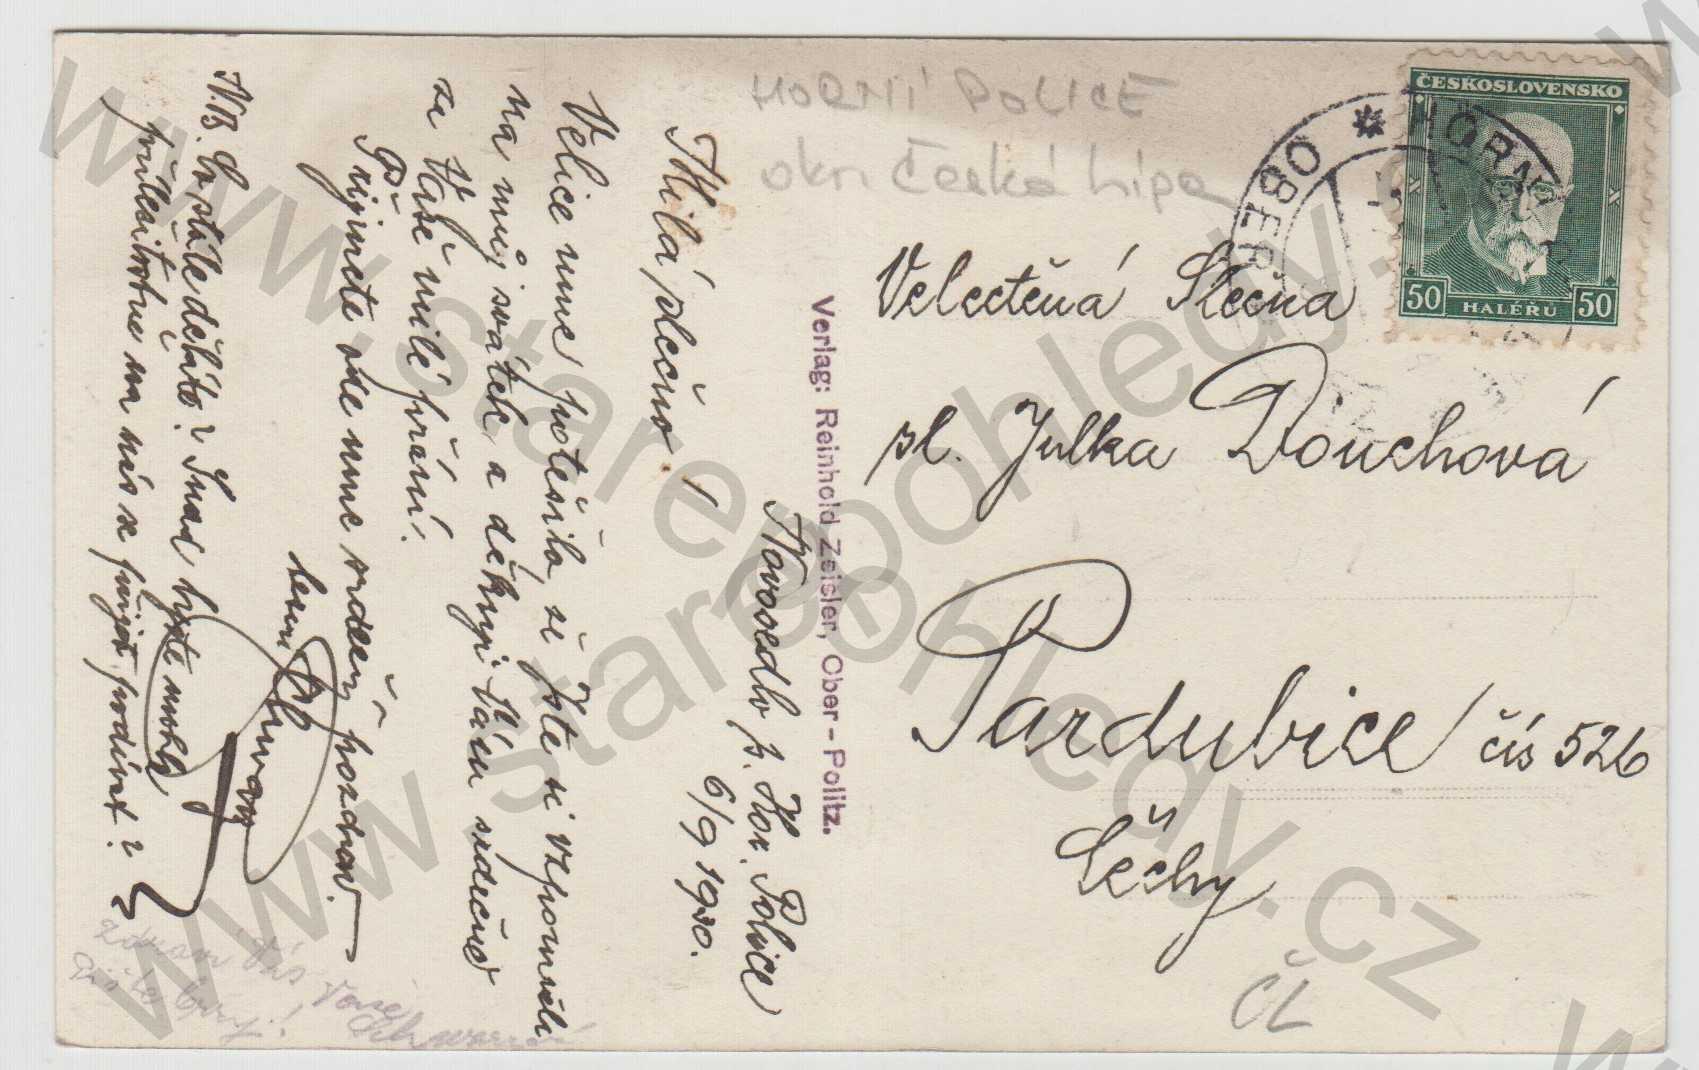 HORNÍ POLICE
okr. Česká Lípa
ČESKOSLOVENSKO
50 HALÉŘŮ 50
HORNÍ
OBER
Velectěná Slečna
sl. Julka Douchová
Pardubice čís 526
Čechy
ČL
Verlag: Reinhold Zeisler, Ober-Politz.
Novosedlo p. Hor. Police
6/9 1930.
Milá slečno.
Velice mne potěšilo, že jste si vzpomněla
na můj svátek a děkuji Vám srdečně
za Vaše milé přání.
Přijměte ode mne srdečný pozdrav.
N.B. Co stále děláte? Snad byste mohla
příležitostně na nás se přijet podívat?
zdraví Vás
Pište brzy!